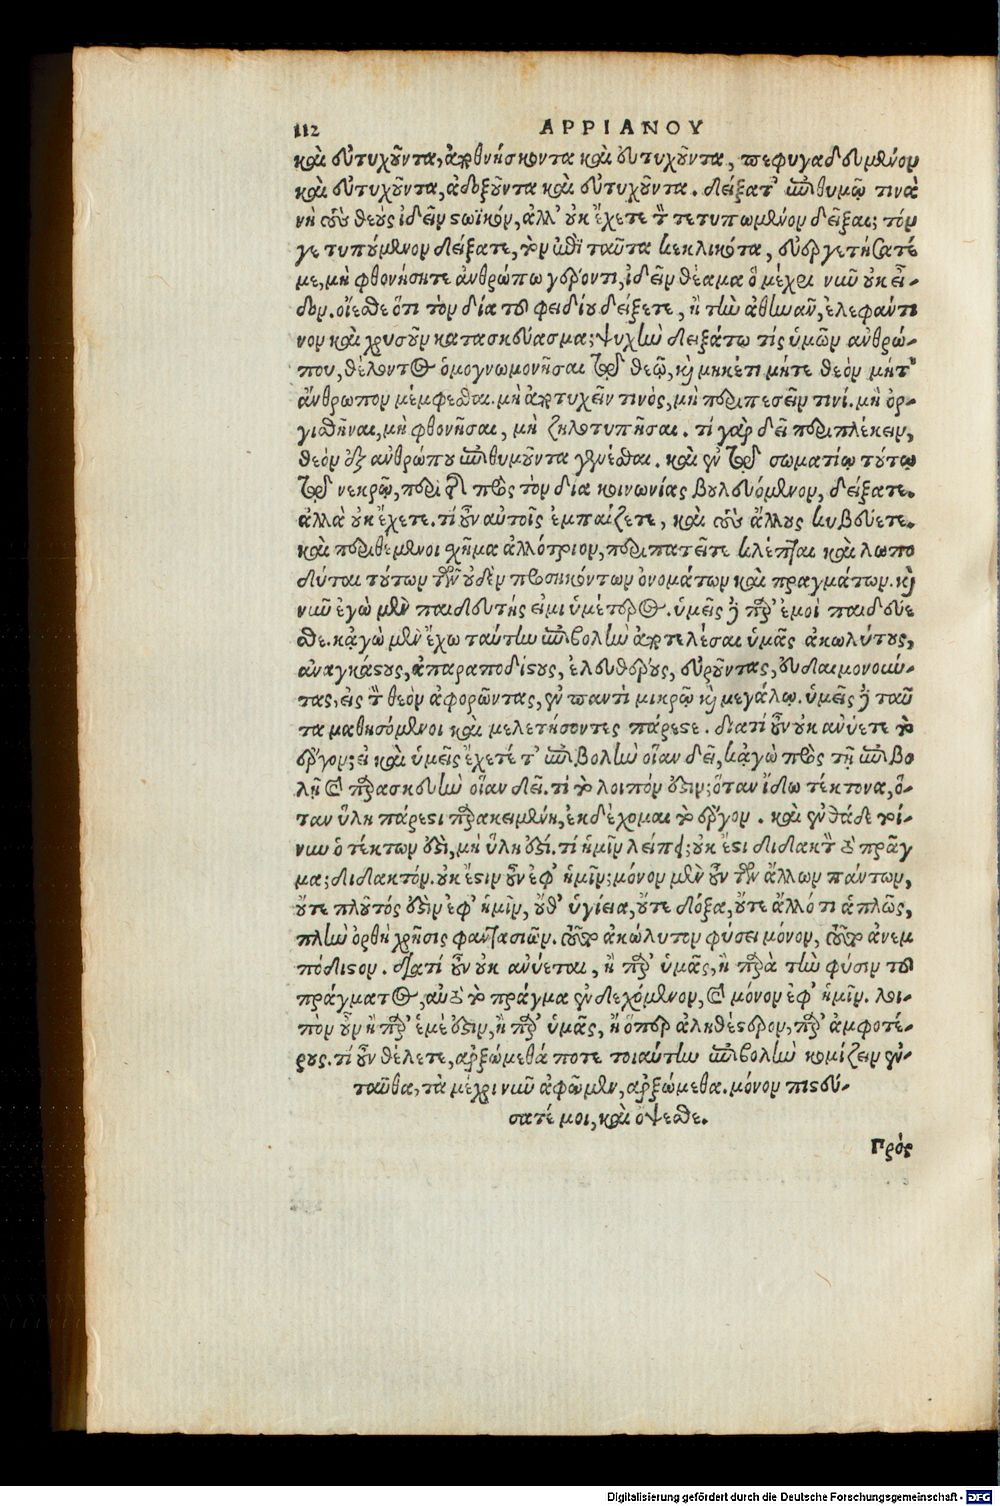 112 ΑΡΡΙΑΝΟΥ
καὶ εὐτυχοῦντα, ἀποθνήσκοντα καὶ εὐτυχοῦντα, πεφυγαδευμένον
καὶ εὐτυχοῦντα, ἀδοξοῦντα καὶ εὐτυχοῦντα. δείξατ' ἐπιθυμῶ τινὰ
νὴ τοὺς θεοὺς ἰδεῖν στωϊκόν, ἀλλ' οὐκ ἔχετε τὸν τετυπωμένον δεῖξαι; τόν
γε τυπούμενον δείξατε, τὸν ἐπὶ ταῦτα κεκλικότα, εὐεργετήσατέ
με, μὴ φθονήσητε ἀνθρώπῳ γέροντι, ἰδεῖν θέαμα ὃ μέχρι νῦν οὐκ εἶ-
δον. οἴεσθε ὅτι τὸν δία τοῦ φειδίου δείξετε, ἢ τὴν ἀθηνᾶν, ἐλεφάντι
νον καὶ χρυσοῦν κατασκεύασμα; ψυχὴν δειξάτω τίς ὑμῶν ἀνθρώ-
που, θέλοντος ὁμογνωμονῆσαι τῷ θεῷ, καὶ μηκέτι μήτε θεὸν μήτ'
ἄνθρωπον μέμφεσθαι. μὴ ἀποτυχεῖν τινὸς, μὴ περιπεσεῖν τινί. μὴ ὀρ-
γισθῆναι, μὴ φθονῆσαι, μὴ ζηλοτυπῆσαι. τί γὰρ δεῖ περιπλέκειν,
θεὸν ἐξ ἀνθρώπου ἐπιθυμοῦντα γενέσθαι. καὶ ἐν τῷ σωματίῳ τούτῳ
τῷ νεκρῷ, περὶ τῆς πρὸς τὸν δία κοινωνίας βουλευόμενον, δείξατε.
ἀλλὰ οὐκ ἔχετε. τί οὖν αὐτοῖς ἐμπαίζετε, καὶ τοὺς ἄλλους κυβεύετε.
καὶ περιθέμενοι σχῆμα ἀλλότριον, περιπατεῖτε κλέπται καὶ λωπο
δύται τούτων τῶν οὐδὲν προσηκόντων ὀνομάτων καὶ πραγμάτων. καὶ
νῦν ἐγὼ μὲν παιδευτής εἰμι ὑμέτερος. ὑμεῖς δὲ παρ' ἐμοὶ παιδεύε
σθε. κἀγὼ μὲν ἔχω ταύτην ἐπιβολὴν ἀποτελέσαι ὑμᾶς ἀκωλύτους,
ἀναγκάστους, ἀπαραποδίστους, ἐλευθέρους, εὐροῦντας, εὐδαιμονοῦν-
τας, εἰς τὸν θεὸν ἀφορῶντας, ἐν παντὶ μικρῷ καὶ μεγάλῳ. ὑμεῖς δὲ ταῦ
τα μαθησόμενοι καὶ μελετήσοντες πάρεστε. διατί οὖν οὐκ ἀνύετε τὸ
ἔργον; εἰ καὶ ὑμεῖς ἔχετέ τ' ἐπιβολὴν οἵαν δεῖ, κἀγὼ πρὸς τῇ ἐπιβο
λῇ καὶ παρασκευὴν οἵαν δεῖ. τί τὸ λοιπόν ἐστιν; ὅταν ἴδω τέκτονα, ὅ-
ταν ὕλη πάρεστι παρακειμένη, ἐκδέχομαι τὸ ἔργον. καὶ ἐνθάδε τοί-
νυν ὁ τέκτων ἐστὶ, μὴ ὕλη ἐστί. τί ἡμῖν λείπει; οὐκ ἔστι διδακτὸν τὸ πρᾶγ
μα; διδακτόν. οὐκ ἔστιν οὖν ἐφ' ἡμῖν; μόνον μὲν οὖν τῶν ἄλλων πάντων,
οὔτε πλοῦτός ἐστιν ἐφ' ἡμῖν, οὔθ' ὑγίεια, οὔτε δόξα, οὔτε ἄλλό τι ἁπλῶς,
πλὴν ὀρθὴ χρῆσις φαντασιῶν. τοῦτο ἀκώλυτον φύσει μόνον, τοῦτο ἀνεμ
πόδιστον. διατί οὖν οὐκ ἀνύεται, ἢ παρ' ὑμᾶς, ἢ παρὰ τὴν φύσιν τοῦ
πράγματος, αὐτὸ τὸ πρᾶγμα ἐνδεχόμενον, καὶ μόνον ἐφ' ἡμῖν. λοι-
πὸν οὖν ἢ παρ' ἐμὲ ἐστιν, ἢ παρ' ὑμᾶς, ἢ ὅπερ ἀληθέστερον, παρ' ἀμφοτέ-
ρους. τί οὖν θέλετε, ἀρξώμεθά ποτε τοιαύτην ἐπιβολὴν κομίζειν ἐν-
ταῦθα, τὰ μέχρι νῦν ἀφῶμεν, ἀρξώμεθα. μόνον πιστεύ-
σατέ μοι, καὶ ὄψεσθε.
Πρὸς
Digitalisierung gefördert durch die Deutsche Forschungsgemeinschaft - DFG